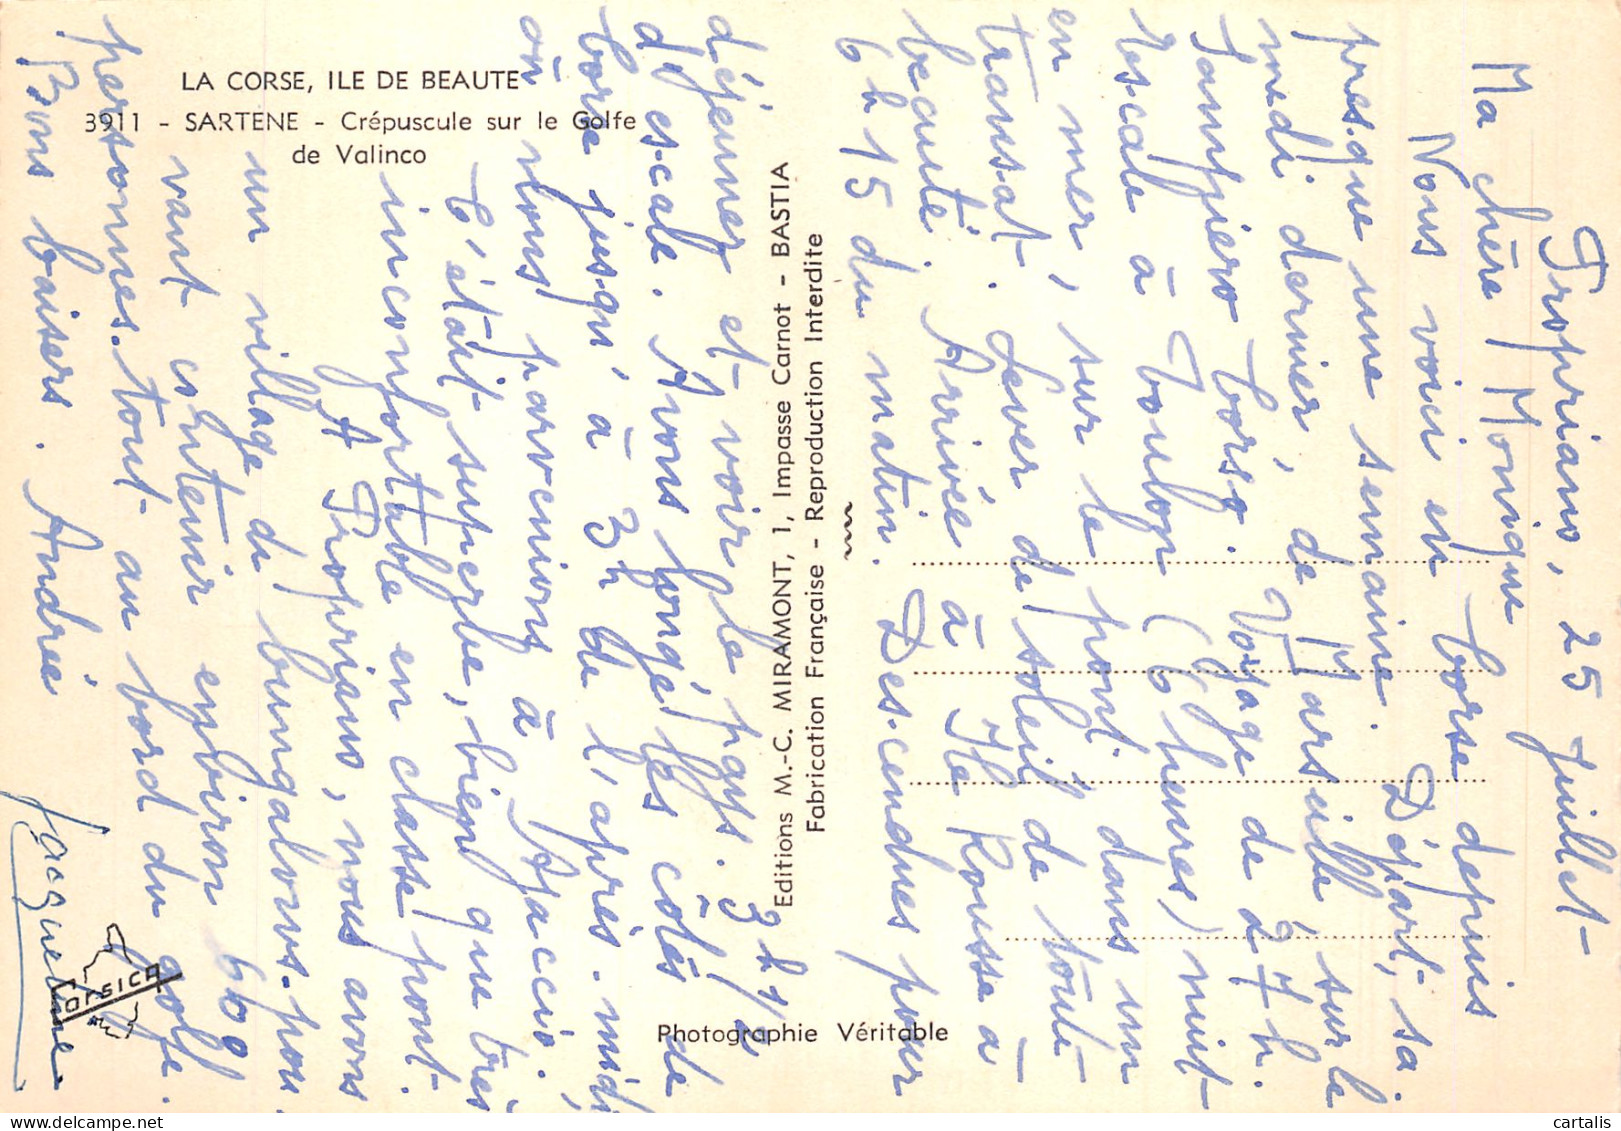 LA CORSE, ILE DE BEAUTE
3911 - SARTENE - Crépuscule sur le Golfe
de Valinco
Editions M.-C. MIRAMONT, 1, Impasse Carnot - BASTIA
Fabrication Française - Reproduction Interdite
Photographie Véritable
corsica
Propriano, 25 Juillet
Ma chère Monique
Nous voici en Corse depuis
presque une semaine. Départ, sa
medi dernier, de Marseille, sur le
Sampiero Corso. Voyage de 27 h.
Escale à Toulon (6 heures) nuit
en mer, sur le pont dans un
transat. Lever de soleil de toute
beauté. Arrivée à Ile Rousse à
6 h 15 du matin. Descendues pour
déjeuner et voir le pays. 3 h 1/2
d'escale. Avons longé les côtes de
Corse jusqu'à 3 h de l'après-midi,
où nous parvenions à Ajaccio.
C'était superbe, bien que très
inconfortable en classe pont.
A Propriano, nous avons
un village de bungalows pou
vant contenir environ 600
personnes tout au bord du golfe.
Bons baisers. Andrée
Jacqueline
cartalis
delcampe.net